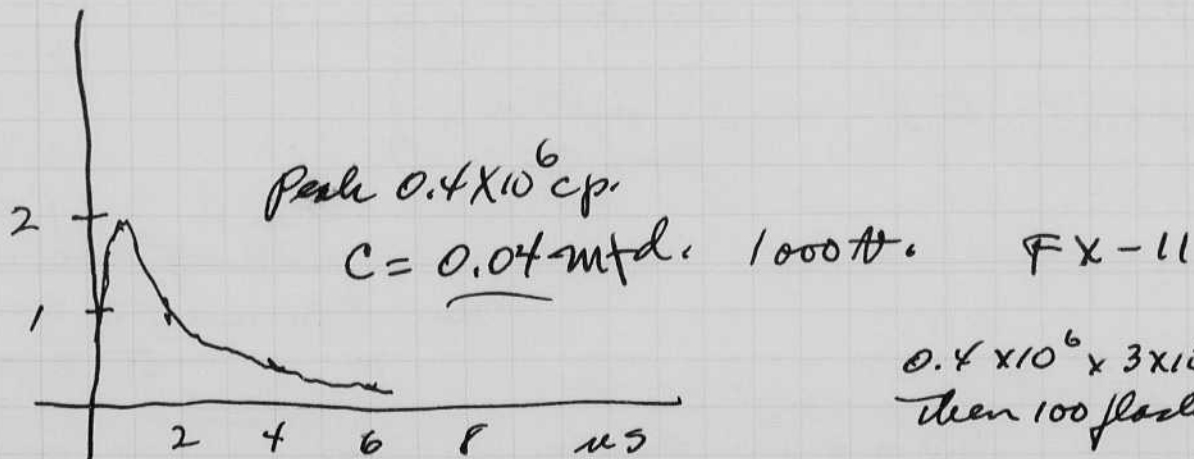 Peak 0.4X10⁶ cp.
2
C = 0.04 mfd. 1000 V. FX-11
1
0.4 x10⁶ x 3x10
Then 100 flas
2 4 6 8 us